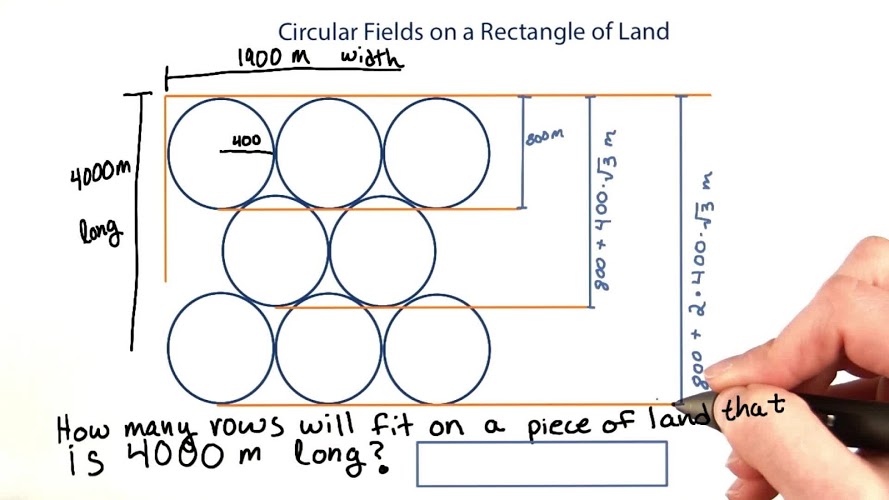 Circular Fields on a Rectangle of Land
1900 m width
400
800m
4000m
long
800 + 400·√3 m
800 + 2·400·√3 m
How many rows will fit on a piece of land that
is 4000 m long?